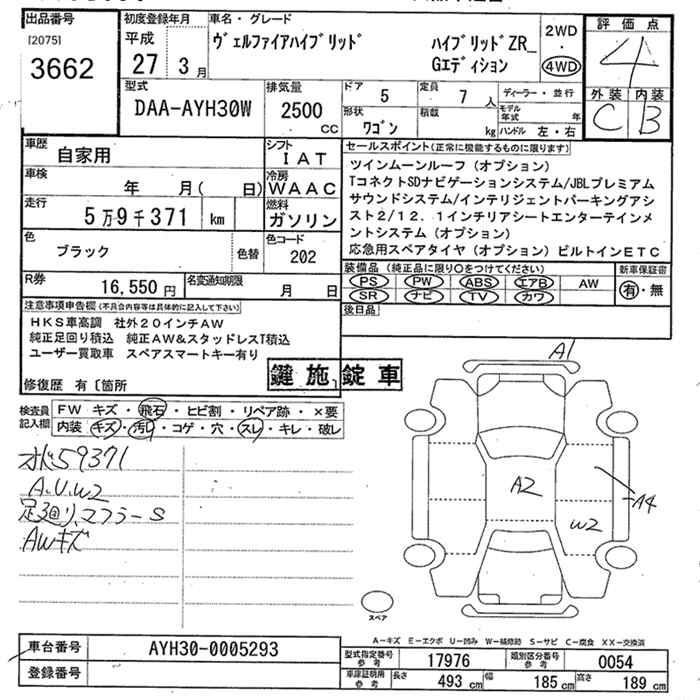 出品番号
[2075]
3662
初度登録年月
平成
27年 3月
車名・グレード
ヴェルファイアハイブリッド
ハイブリッドZR_
Gエディション
2WD
・
4WD
評価点
4
外装 内装
C B
型式
DAA-AYH30W
排気量
2500
cc
ドア 5
定員 7人
形状 ワゴン
積載 kg
ディーラー・並行
モデル年式 年
ハンドル 左・右
車歴 自家用
シフト IAT
車検 年 月( 日)
冷房 WAAC
走行 5万9千371 km
燃料 ガソリン
色 ブラック
色替
色コード 202
R券 16,550円
名変通知期限 月 日
セールスポイント(正常に機能するものに限ります)
ツインムーンルーフ(オプション)
TコネクトSDナビゲーションシステム/JBLプレミアム
サウンドシステム/インテリジェントパーキングアシ
スト2/12.1インチリアシートエンターテインメ
ントシステム(オプション)
応急用スペアタイヤ(オプション)ビルトインETC
装備品(純正品に限り○をつけてください)
新車保証書
PS PW ABS エアB AW
SR ナビ TV カワ
有・無
後日品
注意事項申告欄(不具合内容等は具体的に記入して下さい)
HKS車高調 社外20インチAW
純正足回り積込 純正AW&スタッドレスT積込
ユーザー買取車 スペアスマートキー有り
修復歴 有〔箇所
鍵施錠車
検査員
記入欄
FW キズ・飛石・ヒビ割・リペア跡・×要
内装 キズ・汚レ・コゲ・穴・スレ・キレ・破レ
59371
A.U.W2
足廻り、マフラーS
AWキズ
A1
A2
A4
W2
スペア
A-キズ E-エクボ U-凹み W-補修跡 S-サビ C-腐食 XX-交換済
車台番号 AYH30-0005293
登録番号
型式指定番号 参考 17976
類別区分番号 参考 0054
車庫証明用 参考 長さ 493cm 幅 185cm 高さ 189cm